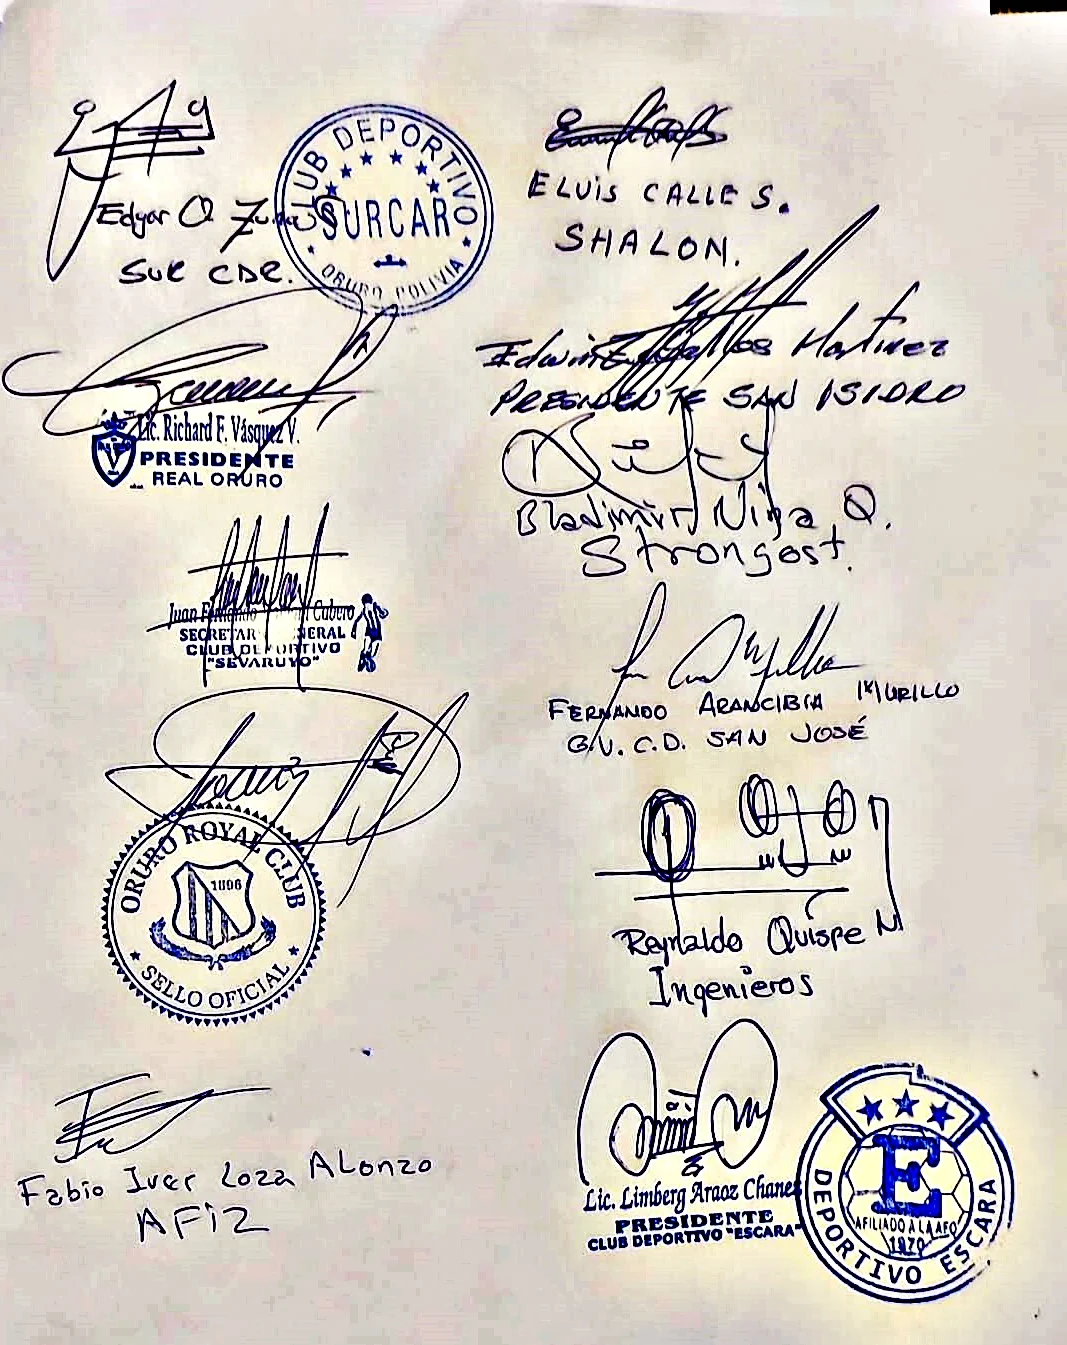 Edgar Q.
SUR CAR.
CLUB DEPORTIVO
SURCAR
ORURO BOLIVIA
ELVIS CALLE S.
SHALON.
Lic. Richard F. Vásquez V.
PRESIDENTE
REAL ORURO
Edwin Martinez
PRESIDENTE SAN ISIDRO
Bladimir Nina Q.
Strongost.
Juan Cubero
SECRETAR NERAL
CLUB DEPORTIVO
"SEVARUYO"
FERNANDO ARANCIBIA MURILLO
G.V. C.D. SAN JOSÉ
ORURO ROYAL CLUB
1896
SELLO OFICIAL
Reynaldo Quispe N
Ingenieros
Fabio Iver Loza ALonzo
AFIZ
Lic. Limberg Araoz Chanez
PRESIDENTE
CLUB DEPORTIVO "ESCARA"
E
AFILIADO A LA AFO
1970
DEPORTIVO ESCARA